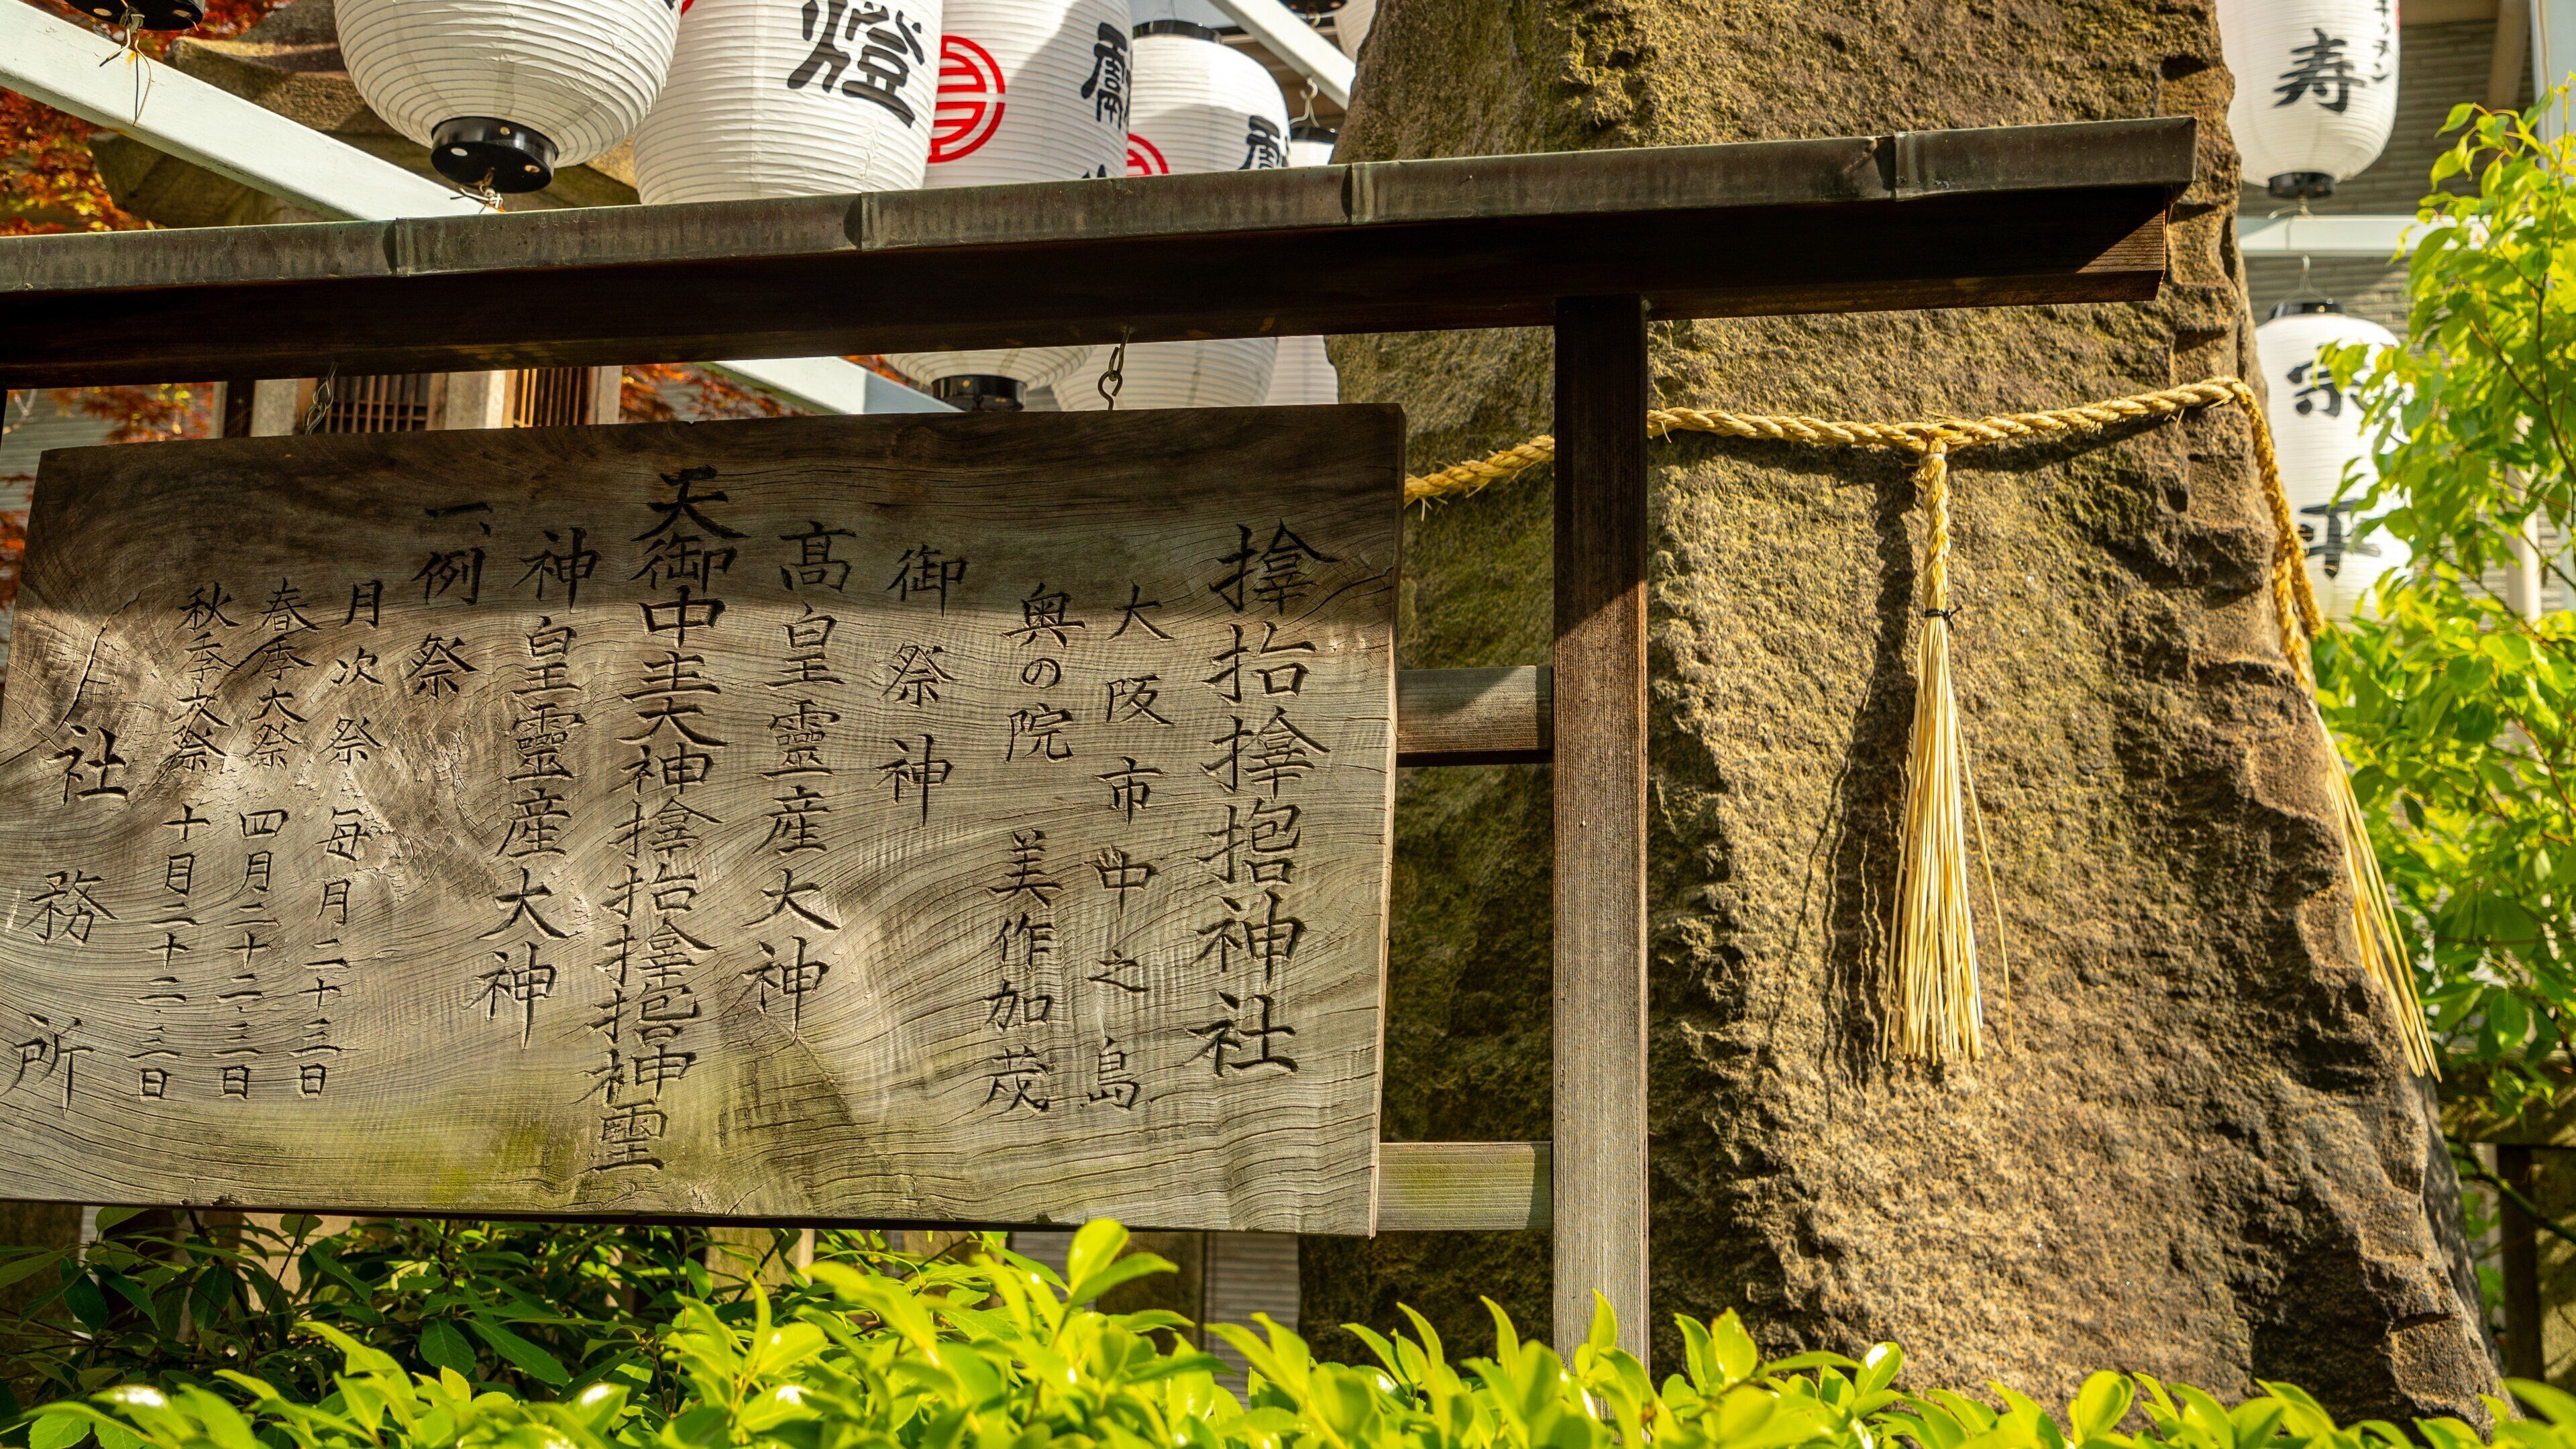 𪮷抬𪮷𪮇神社
大阪市中之島
奥の院 美作加茂
御祭神
髙皇靈産大神
天御中主大神𪮷抬𪮷𪮇神霊
神皇靈産大神
一、例祭
月次祭 毎月二十三日
春季大祭 四月二十二、三日
秋季大祭 十月二十二、三日
社務所
燈
寿
宗平